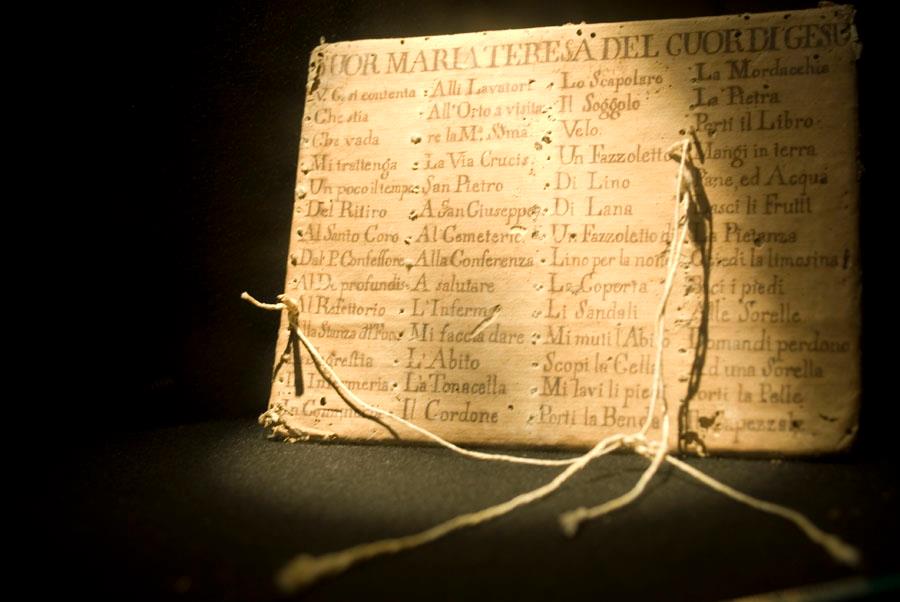 SUOR MARIA TERESA DEL CUOR DI GESU
V. G. si contenta
Che stia
Che vada
Mi trattenga
Un poco il tempo
Del Ritiro
Al Santo Coro
Dal P. Confessore
Al De profundis
Al Refettorio
Alla Stanza
In Infermeria
Alli Lavatori
All'Orto a visita
re la Mª SSma
La Via Crucis
San Pietro
A San Giuseppe
Al Cemeterio
Alla Conferenza
A salutare
L'Inferma
Mi faccia dare
L'Abito
La Tonacella
Il Cordone
Lo Scapolaro
Il Soggolo
Velo
Un Fazzoletto
Di Lino
Di Lana
Un Fazzoletto di
Lino per la notte
La Coperta
Li Sandali
Mi muti l'Abito
Scopi la Cella
Mi lavi li piedi
Porti la Benda
La Mordacchia
La Pietra
Porti il Libro
Mangi in terra
Pane, ed Acqua
Lasci li Frutti
La Pietanza
Chiedi la limosina
Baci i piedi
Alle Sorelle
Domandi perdono
Ad una Sorella
Porti la Pelle